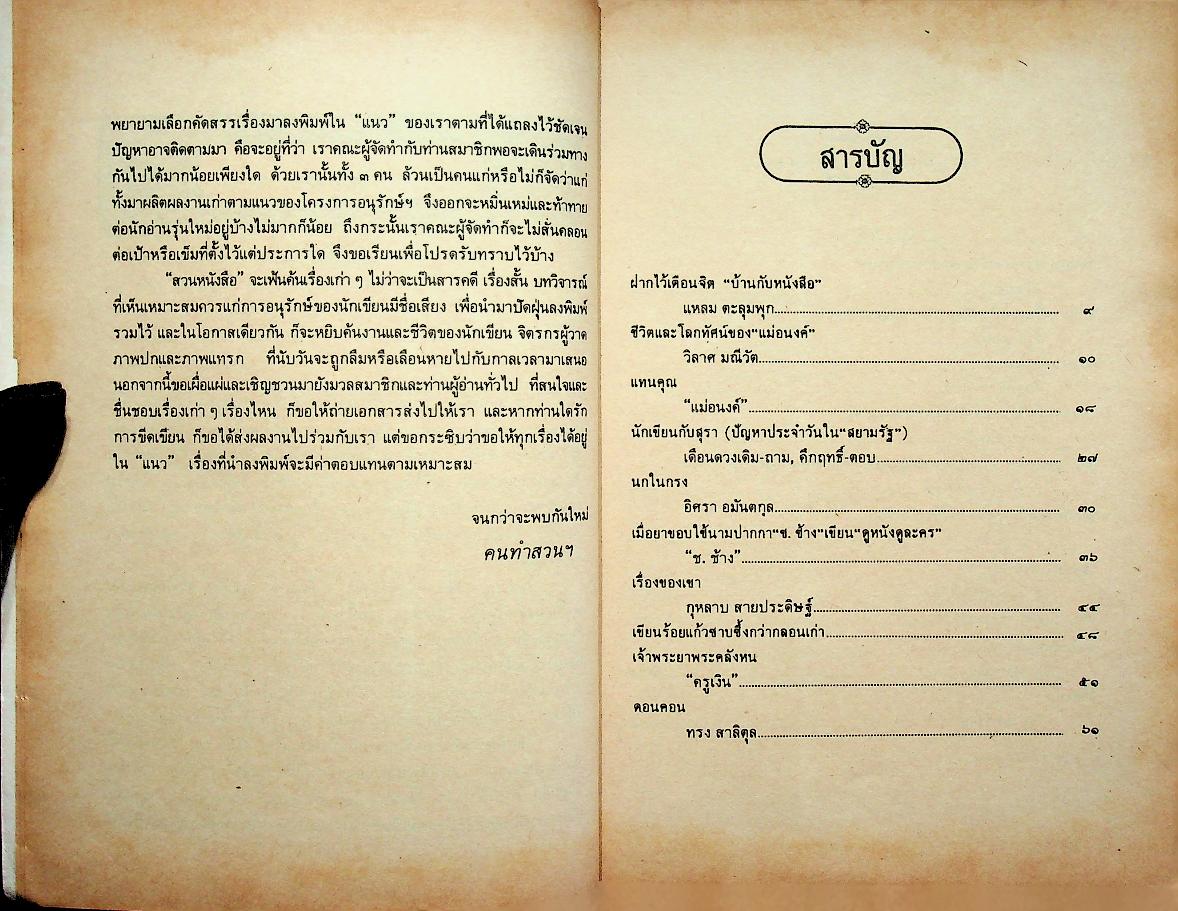 พยายามเลือกคัดสรรเรื่องมาลงพิมพ์ใน “แนว” ของเราตามที่ได้แถลงไว้ชัดเจน
ปัญหาอาจติดตามมา คือจะอยู่ที่ว่า เราคณะผู้จัดทำกับท่านสมาชิกพอจะเดินร่วมทาง
กันไปได้มากน้อยเพียงใด ด้วยเรานั้นทั้ง ๓ คน ล้วนเป็นคนแก่หรือไม่ก็จัดว่าแก่
ทั้งมาผลิตผลงานเก่าตามแนวของโครงการอนุรักษ์ฯ จึงออกจะหมิ่นเหม่และท้าทาย
ต่อนักอ่านรุ่นใหม่อยู่บ้างไม่มากก็น้อย ถึงกระนั้นเราคณะผู้จัดทำก็จะไม่สั่นคลอน
ต่อเป้าหรือเข็มที่ตั้งไว้แต่ประการใด จึงขอเรียนเพื่อโปรดรับทราบไว้บ้าง
“สวนหนังสือ” จะเฟ้นค้นเรื่องเก่า ๆ ไม่ว่าจะเป็นสารคดี เรื่องสั้น บทวิจารณ์
ที่เห็นเหมาะสมควรแก่การอนุรักษ์ของนักเขียนมีชื่อเสียง เพื่อนำมาปัดฝุ่นลงพิมพ์
รวมไว้ และในโอกาสเดียวกัน ก็จะหยิบค้นงานและชีวิตของนักเขียน จิตรกรผู้วาด
ภาพปกและภาพแทรก ที่นับวันจะถูกลืมหรือเลือนหายไปกับกาลเวลามาเสนอ
นอกจากนี้ขอเผื่อแผ่และเชิญชวนมายังมวลสมาชิกและท่านผู้อ่านทั่วไป ที่สนใจและ
ชื่นชอบเรื่องเก่า ๆ เรื่องไหน ก็ขอให้ถ่ายเอกสารส่งไปให้เรา และหากท่านใดรัก
การขีดเขียน ก็ขอได้ส่งผลงานไปร่วมกับเรา แต่ขอกระซิบว่าขอให้ทุกเรื่องได้อยู่
ใน “แนว” เรื่องที่นำลงพิมพ์จะมีค่าตอบแทนตามเหมาะสม
จนกว่าจะพบกันใหม่
คนทำสวนฯ
สารบัญ
ฝากไว้เตือนจิต “บ้านกับหนังสือ”
แหลม ตะลุมพุก ๙
ชีวิตและโลกทัศน์ของ“แม่อนงค์”
วิลาศ มณีวัต ๑๐
แทนคุณ
“แม่อนงค์” ๑๘
นักเขียนกับสุรา (ปัญหาประจำวันใน“สยามรัฐ”)
เดือนดวงเดิม-ถาม, คึกฤทธิ์-ตอบ ๒๗
นกในกรง
อิศรา อมันตกุล ๓๐
เมื่อยาขอบใช้นามปากกา“ช. ช้าง”เขียน“ดูหนังดูละคร”
“ช. ช้าง” ๓๖
เรื่องของเขา
กุหลาบ สายประดิษฐ์ ๔๔
เขียนร้อยแก้วซาบซึ้งกว่ากลอนเก่า ๔๘
เจ้าพระยาพระคลังหน
“ครูเงิน” ๕๑
ดอนคอน
ทรง สาลิตุล ๖๑